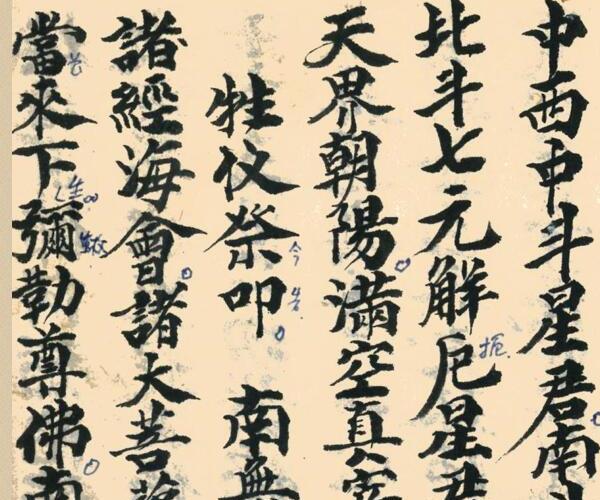 中西中斗星君南
北斗七元解厄星君
天界朝陽滿空真宰
牲仪祭叩 南無
諸經海會諸大菩薩
當來下彌勒尊佛南